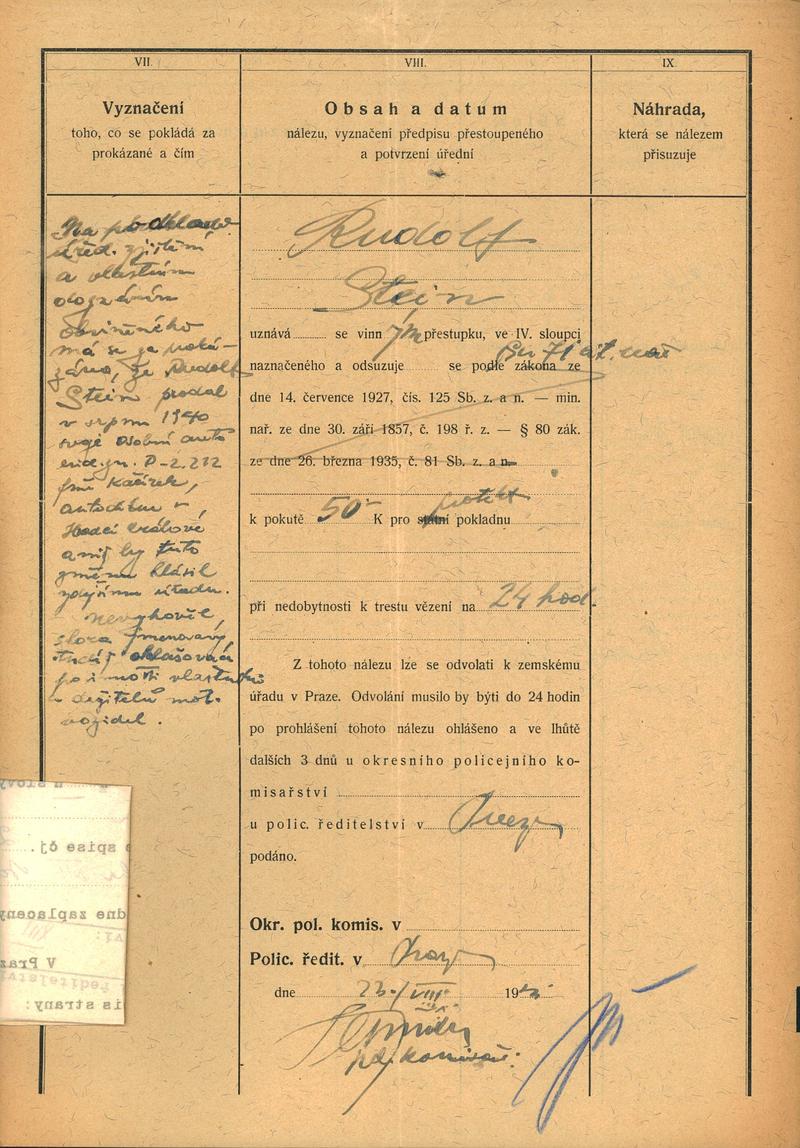 VII.
Vyznačení
toho, co se pokládá za
prokázané a čím
Na podkladě
úřed. zjištění
a vlastním
doznáním
obviněného
má se za proká-
záno, že Rudolf
Stein prodal
v srpnu 1940
svoje osobní auto
P-2.212
autodílna
aniž by tuto
změnu hlásil
úřadu.
Nevyhověl,
jmenovaný
ohlašovací
povinnosti vlastníků
a držitelů mot.
vozidel.
VIII.
Obsah a datum
nálezu, vyznačení předpisu přestoupeného
a potvrzení úřední
Rudolf
Stein
uznává se vinn ým přestupku, ve IV. sloupci
naznačeného a odsuzuje se podle zákona ze
dne 14. července 1927, čís. 125 Sb. z. a n. — min.
nař. ze dne 30. září 1857, č. 198 ř. z. — § 80 zák.
ze dne 26. března 1935, č. 81 Sb. z. a n.
k pokutě 50 K pro státní pokladnu
při nedobytnosti k trestu vězení na 24 hod
Z tohoto nálezu lze se odvolati k zemskému
úřadu v Praze. Odvolání musilo by býti do 24 hodin
po prohlášení tohoto nálezu ohlášeno a ve lhůtě
dalších 3 dnů u okresního policejního ko-
misařství
u polic. ředitelství v Praze
podáno.
Okr. pol. komis. v
Polic. ředit. v Praze
dne 23./VIII. 194
pol. komisař.
IX.
Náhrada,
která se nálezem
přisuzuje
spise čj.
dne zaplaceny
V Praz
strany: